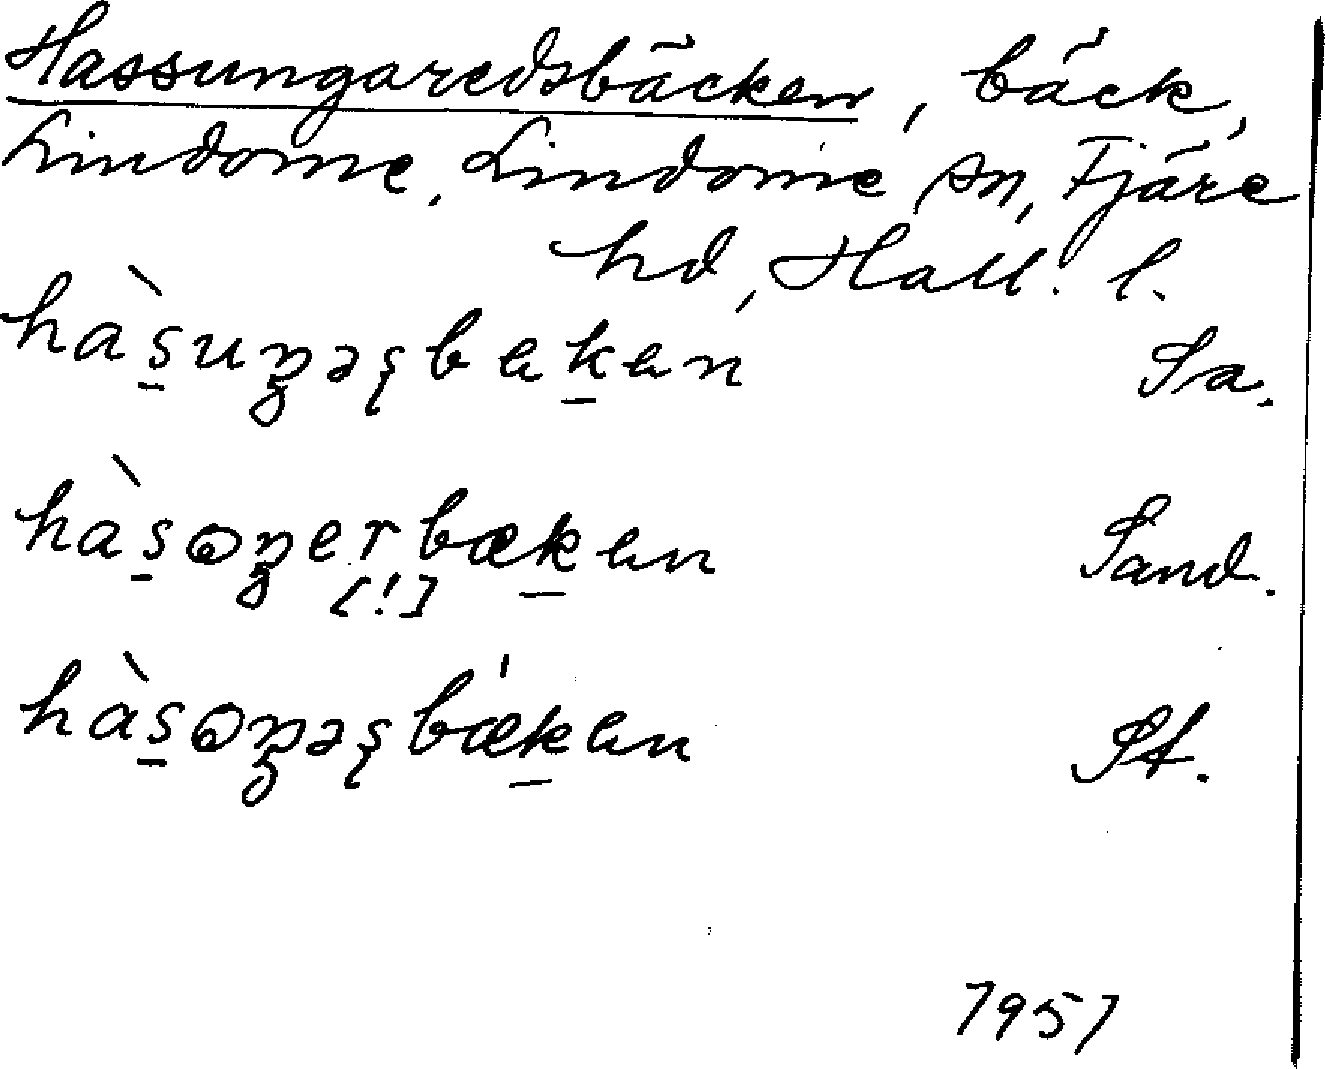 Hassungaredsbäcken, bäck,
Lindome, Lindome sn, Fjäre
hd, Hall. l.
hàs̱uŋəʂbeḵen Sa.
hàs̱ωŋerbæḵen Sand.
[!]
hàs̱ωŋəʂbæ̍ḵen St.
1951